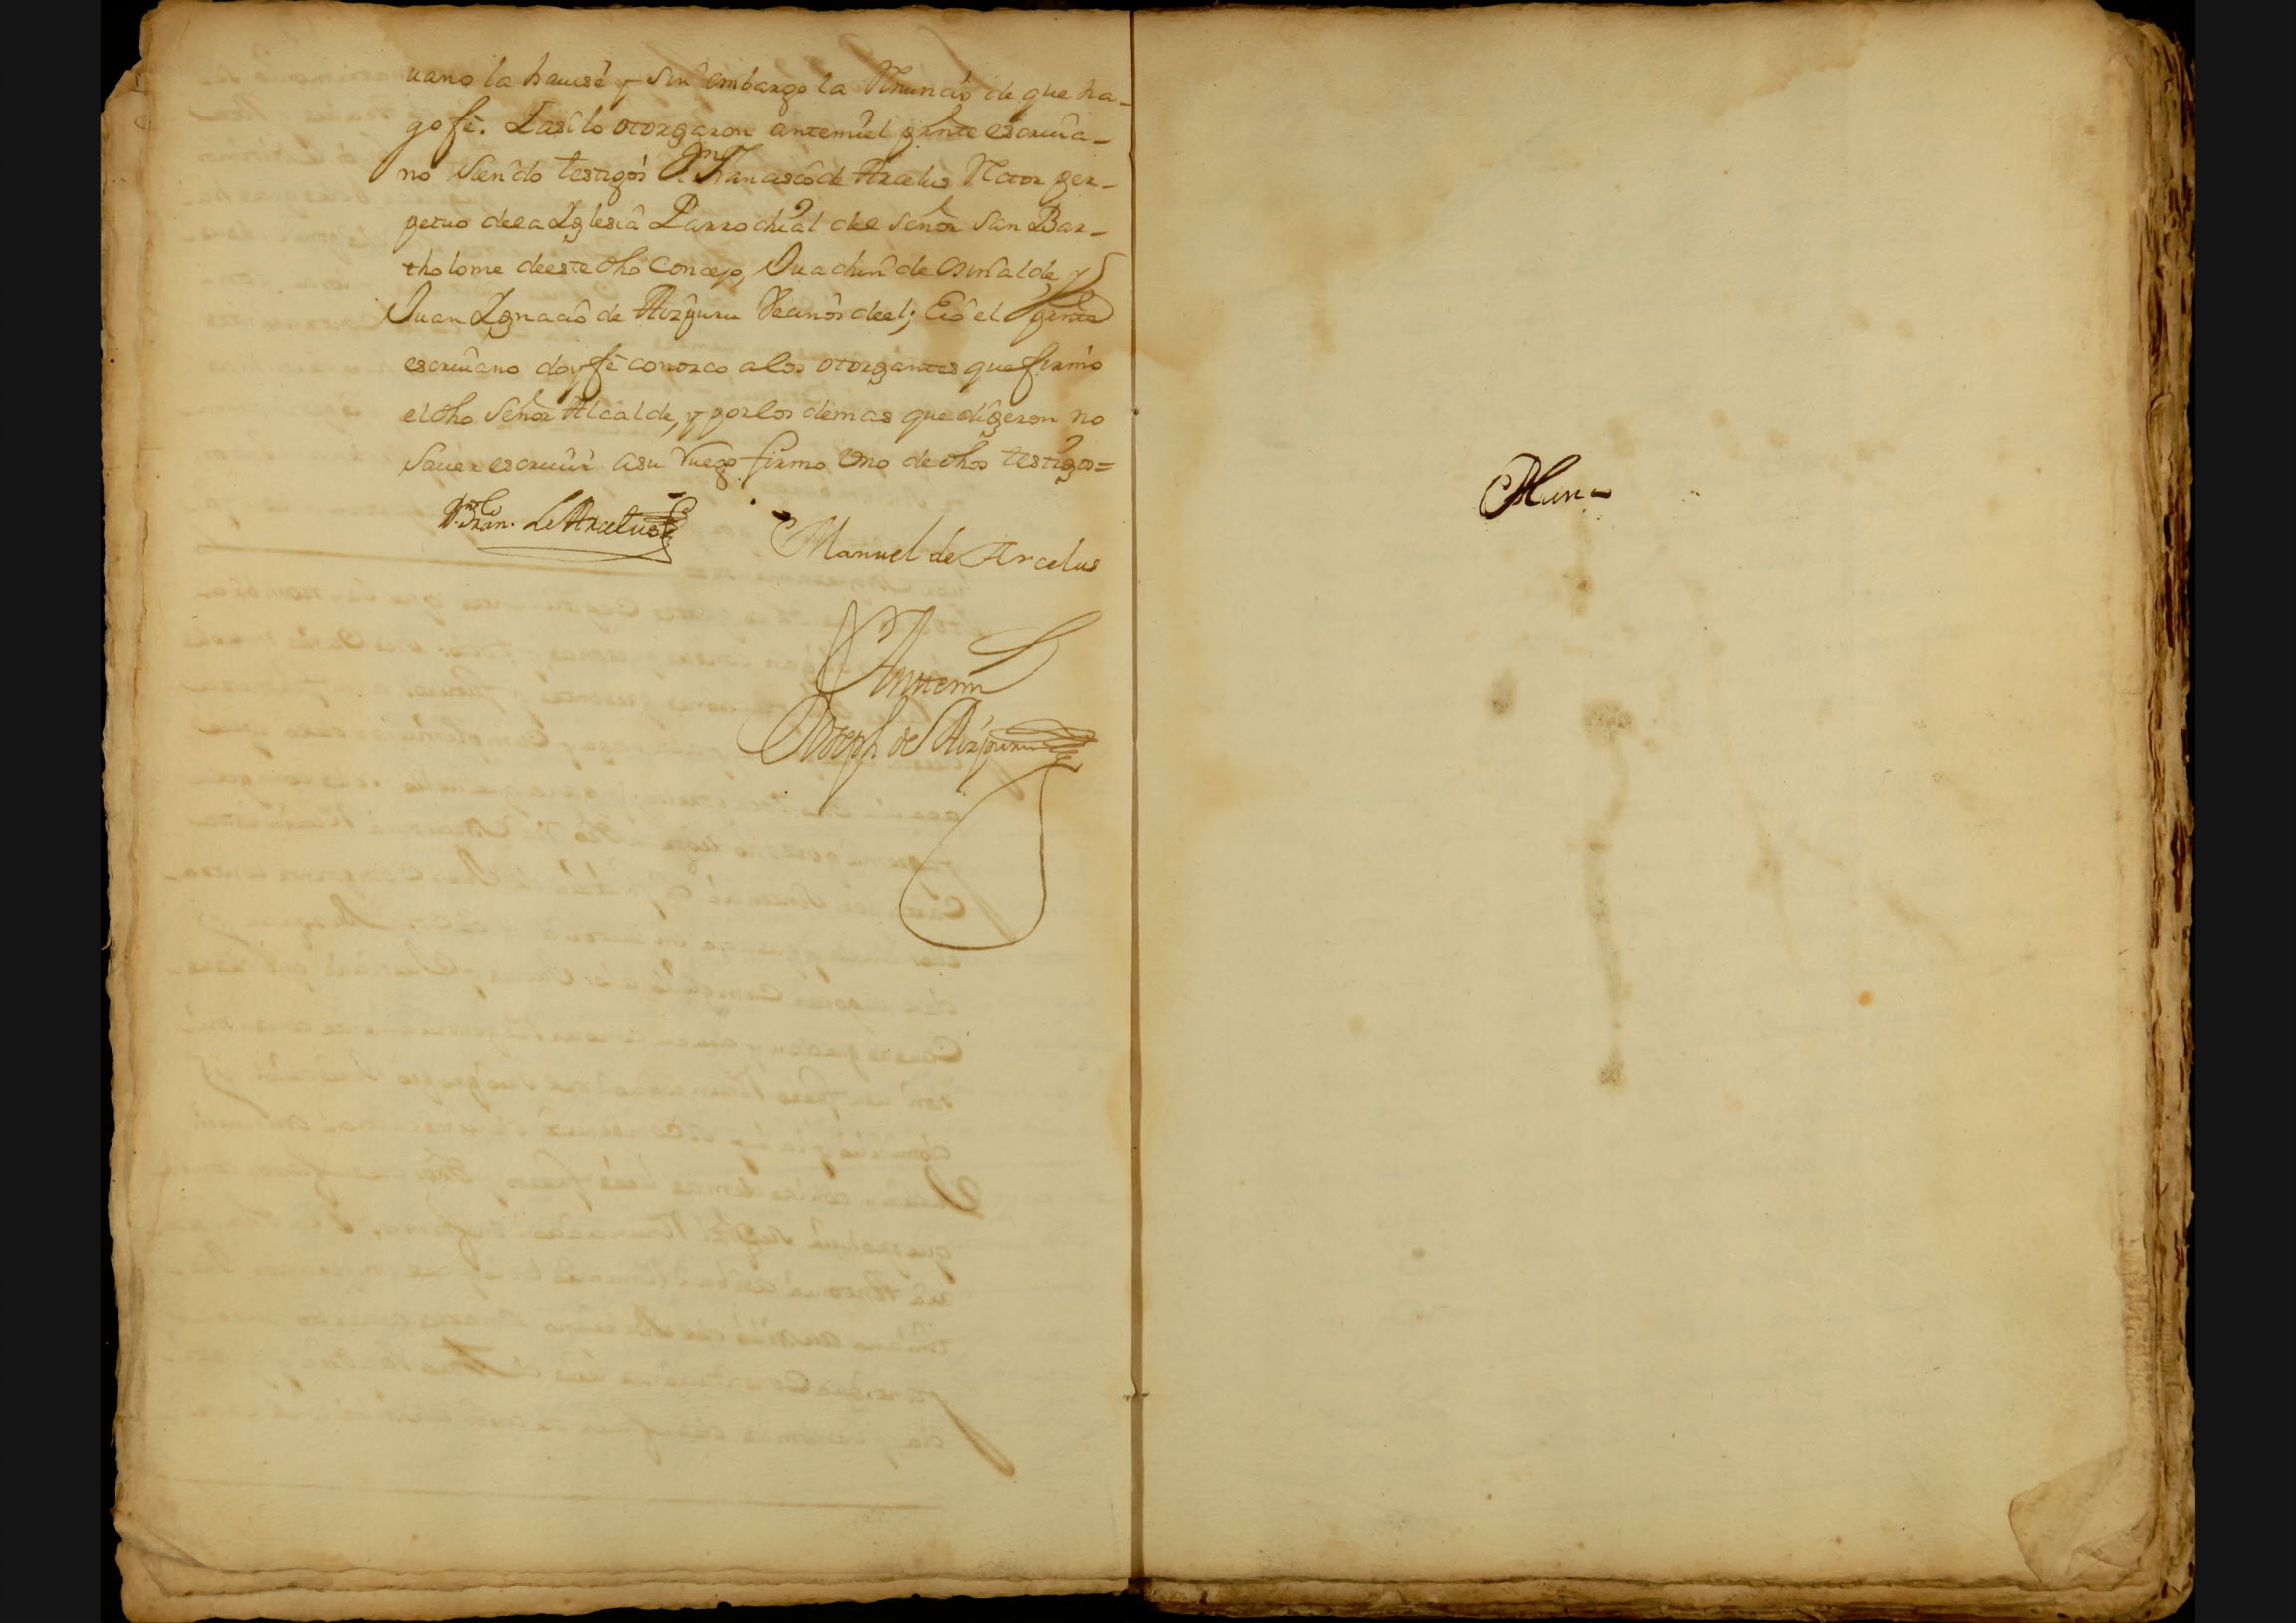 uano la hauise y sin embargo la Renuncio de que ha-
go fè. I asi lo otorgaron antemi el pnte escriua-
no siendo testigos Dn Francisco de Arcelus Rector per-
petuo de la Iglesia Parrochial del señor San Bar-
tholome de este dho Concejo, Juachin de Osinalde, y
Juan Ignacio de Aizpuru Vecinos de el; E io el pnte
escriuano doy fè conozco a los otorgantes que firmo
el dho Señor Alcalde, y por los demas que digeron no
sauer escriuir a su ruego firmo Uno de dhos testigos=
Dn Fran.co de Arcelus
Manuel de Arcelus
Antemi
Joseph de Aizpuru